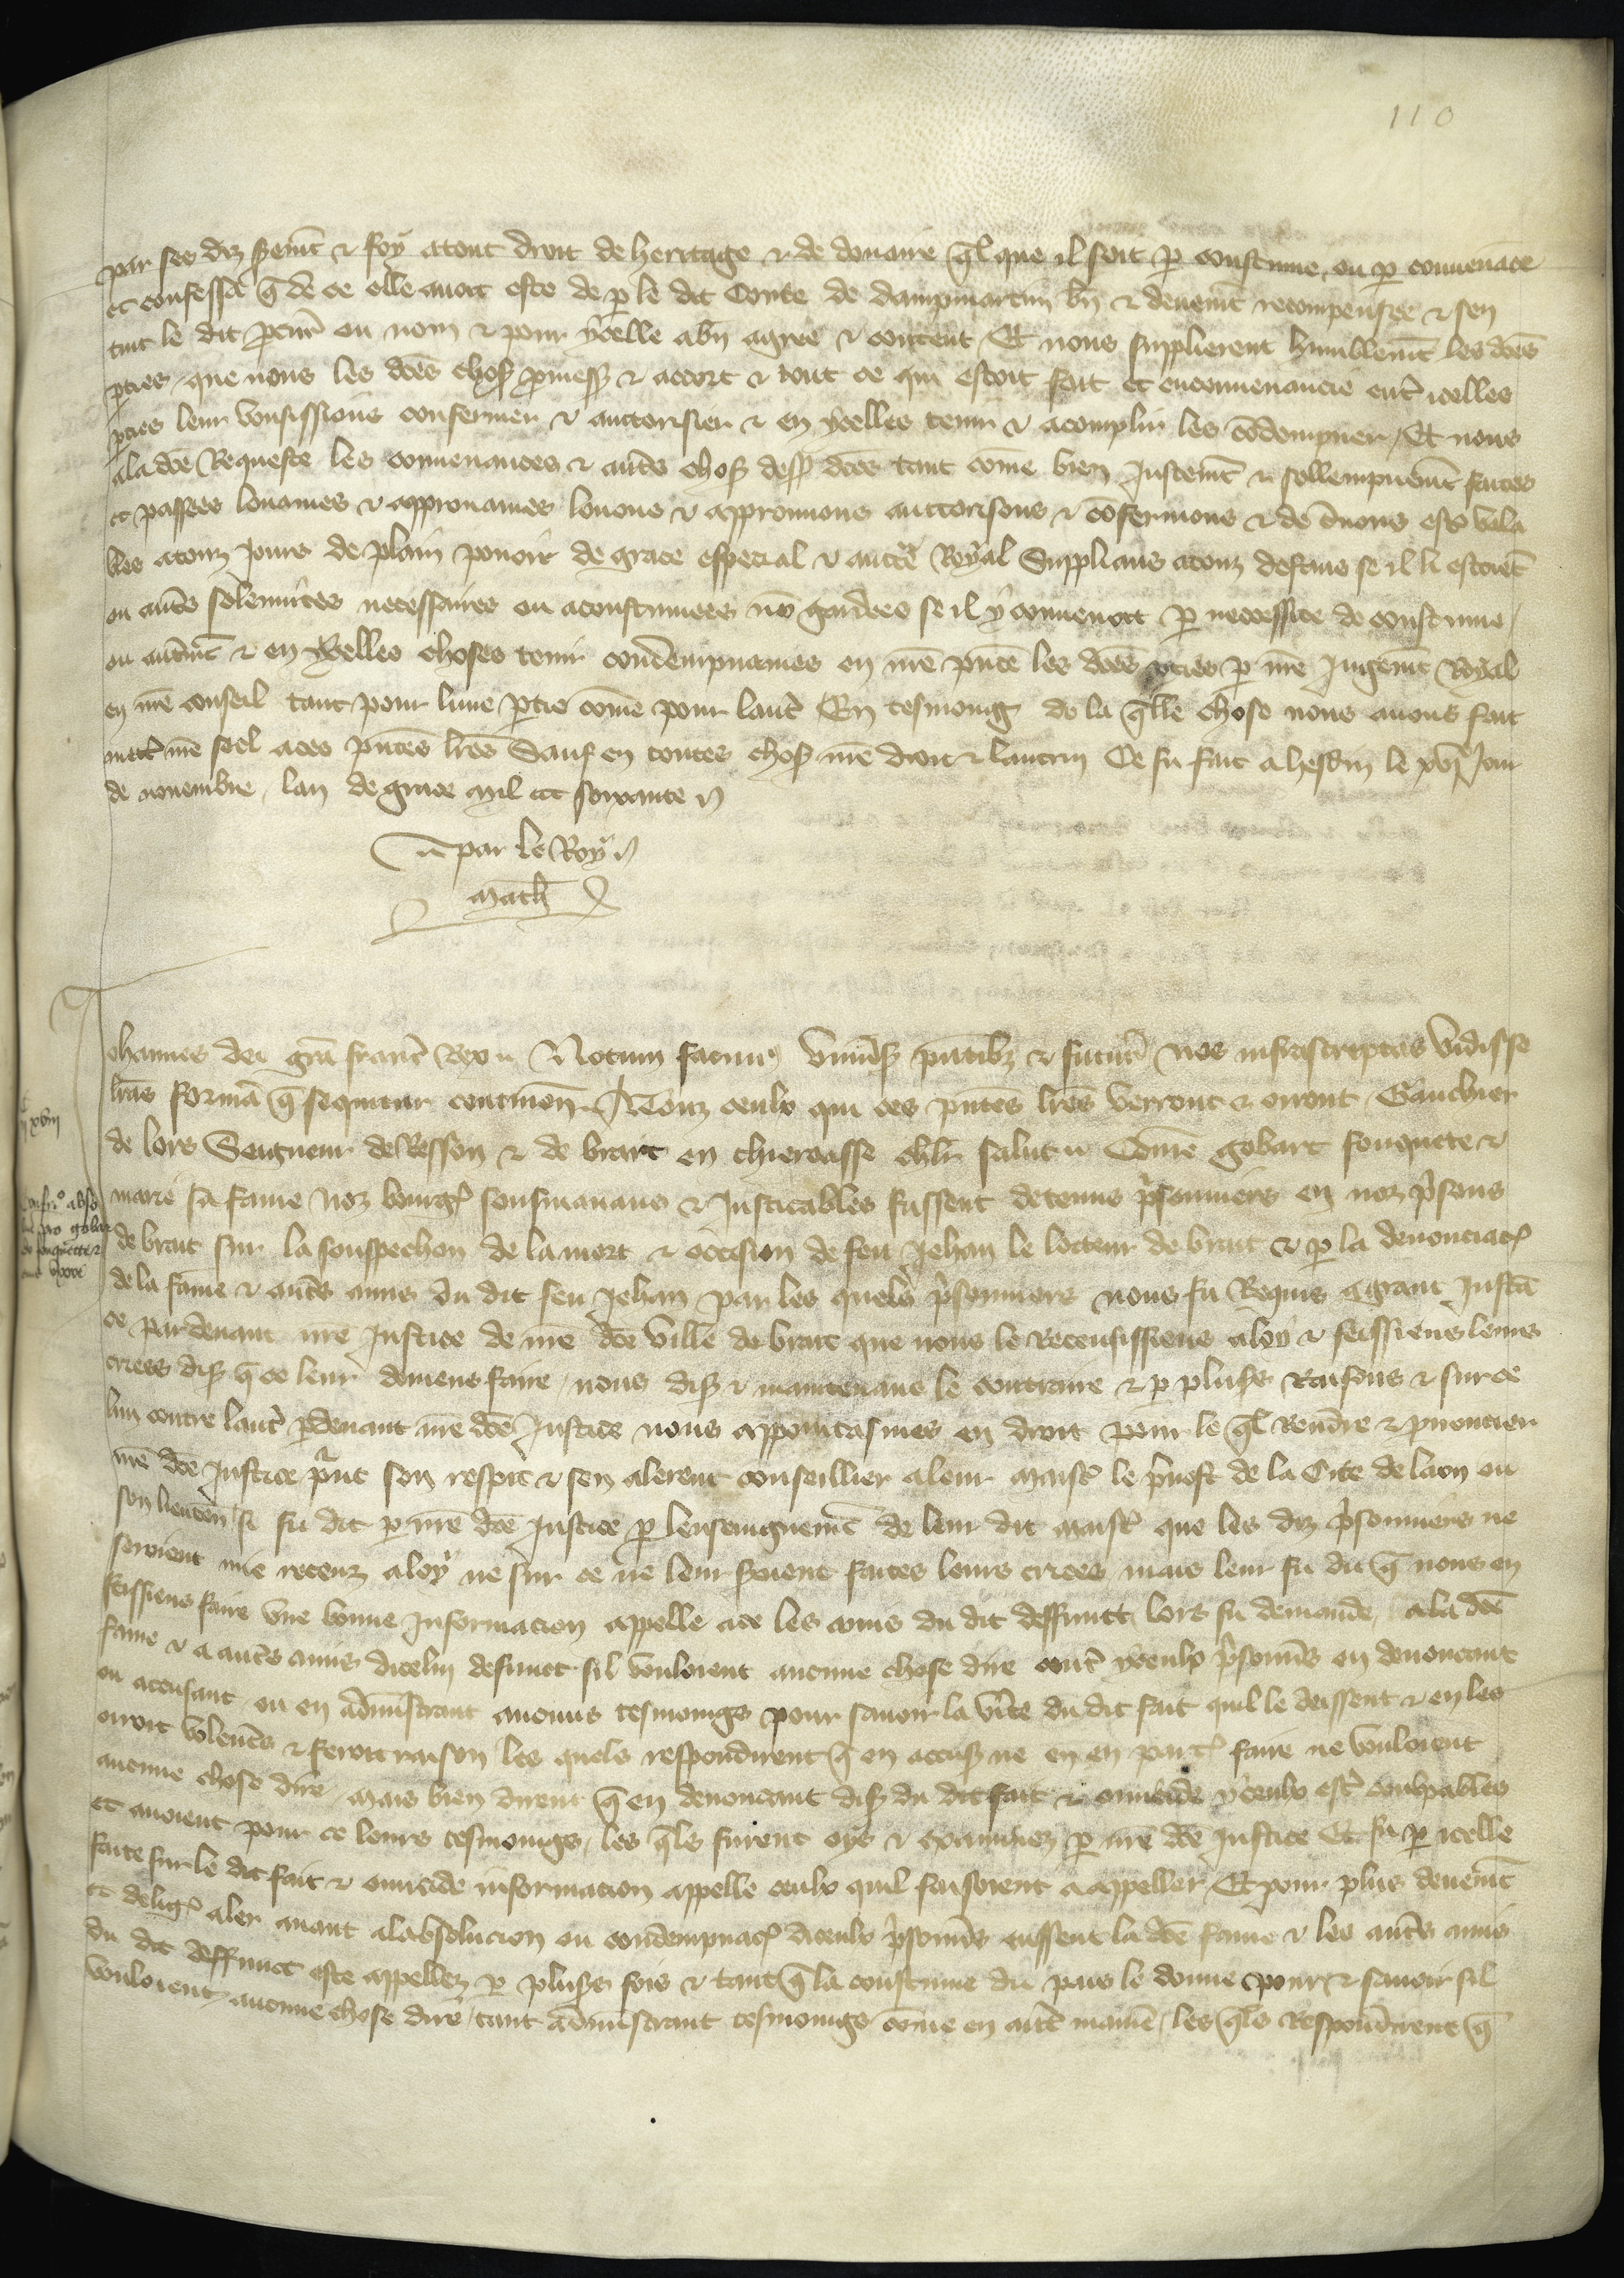 110
par ses diz seremt & foy a tout droit de heritage & de douaire ql que il soit p coustume ou p convenāce
et confessa q̄ de ce elle avoit este de p le dit Conte de dampmartin bn̄ & deuemt recompensee & sen
tint le dit pcur ou nom & pour ycelle a bn̄ agree & content / Et nous supplierent humblemt les dces
pties / que nous les dces choses pmesses & accort & tout ce qui estoit fait et enconvenancié entr icelles
pties leur vousissions confermer & auctorisier & en ycelles tenir & acomplir les cōdempner / Et nous
a la dce Requeste les convenances & autrs choses dess dces tant come bien Justemt & sollempnemt faites
et passees louames & approuames louons & approuvons auctorisons & cōfermons & de
bles a touz jours de plain pouoir de grace especial & auctte Royal Supplians a touz deffaus se il li estoiēt
ou autrs solemnites necessaires ou acoustumees nō gardees se il y convenoit p necessite de coustume /
ou autremt & en ycelles choses tenir condempnames en nre pnce les dces pties p nre Jugemt Royal
en nre conseil tant pour lune ptie come pour lautr En tesmoing de la qlle chose nous avons fait
mettr nre seel a ces pntes lres Sauf en toutes choses nre droit & lautrui Ce fu fait a hesdin le xvi Jour
de novembre / lan de grace mil ccc soixante
par le Roy
math
Johannes dei gra franc Rex Notum facimus Univsis pntibz & futur nos infrascriptas vidisse
lras formā q sequitur continen A Touz ceulx qui ces pntes lres verront & orront / Gauchier
de lors Seigneur de Resson & de brait en thieroasse chlr salut Come gobart fouquete &
marie sa fame noz bourgs sousmanans & Justicables fussent detenus psonniers en noz psons
de brait sur la souspechon de la mort & occision de feu Jehan le locteur de brait & p la denonciac
de la fame & autrs amis du dit feu Jehan / par les quels psonniers nous fu Requis a grant Instā
ce pardevant nre Justice de nre dce ville de brait que nous le Receussissiens a loy & feissiens leurs
criees dis q̄ ce leur deviens faire / nous dis & maintenans le contraire & p pluss Raisons & sur ce
lun contre lautr pdevant nre dce Justice nous appointasmes en droit pour le ql Rendre & pnoncier
nre dce Justice print son respit & sen alerent conseillier a leur maistr le pvost de la Cite de laon ou
son lieuten / si fu dit p nre dce Justice p lenseingnemt de leur dit maistr que les diz psonniers ne
seroient mie receuz a loy ne sur ce ne leur seroient faites leurs criees mais leur fu dit q̄ nous en
feissiens faire une bonne Information appelle a ce les amis du dit deffunct / lors fu demande / a la dce
fame & a autrs amis dicelui defunct sil vouloient aucune chose dire contr yceulx psonns en denoncant
ou accusant / ou en administrant aucuns tesmoings pour savoir la vite du dit fait quil le deissent & en les
orroit volentrs & feroit raison les quels respondirent q̄ en accus ne en en part faire ne vouloient
aucune chose dire / mais bien dirent q̄ en denoncant dis du dit fait & omicide yceulx estr coulpables
et avoient pour ce leurs tesmoings / les qls furent oys & examinez p nre dce Justice Et fu p icelle
faite sur le dit fait & omicide information appelle ceulx quil faisoient a appeller / Et pour plus deuemt
et delig aler avant a labsolucion ou condempnac diceulx psonns eussent la dce fame & les autrs amis
du dit deffunct este appellez p pluss fois & tant q̄ la coustume du pais le donne pour & savoir sil
vouloient / aucune chose dire / tant administrant tesmoings come en autr manie / les qls Respondirent q̄